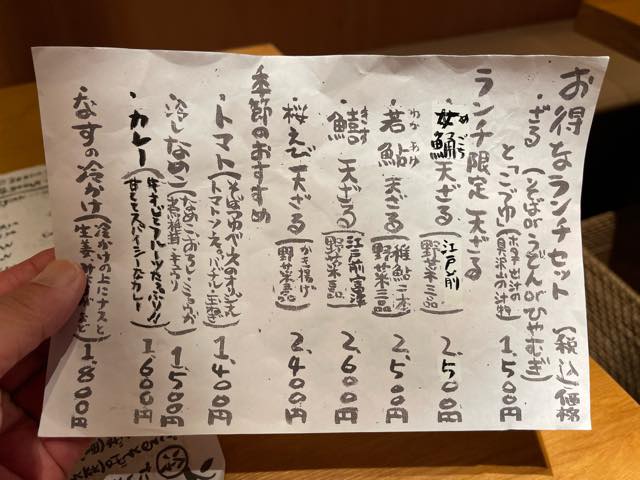 お得なランチセット (税込)価格
・ざる(そばorうどんorひやむぎ)
と「ごつゆ」(ホタテ出汁の貝沢山の汁物) 1,500円
ランチ限定 天ざる
・女鯒 天ざる(江戸前 野菜三品) 2,500円
めごち
・若鮎 天ざる(稚鮎二本 野菜三品) 2,500円
わかあゆ
・鱚 天ざる(江戸前富津 野菜三品) 2,600円
きす
・桜えび天ざる(かき揚げ 野菜三品) 2,400円
季節のおすすめ
・トマト(そばつゆベースのオリジナル トマトソース、バジル、玉ねぎ) 1,400円
・冷しなめこ(なめこ・おろし・ミョウガ 茸・キュウリ) 1,500円
・カレー(牛すじとフルーツたっぷり!! 甘くてスパイシーなカレー) 1,600円
・なすの冷かけ(冷かけの上にナスと 生姜、など) 1,800円